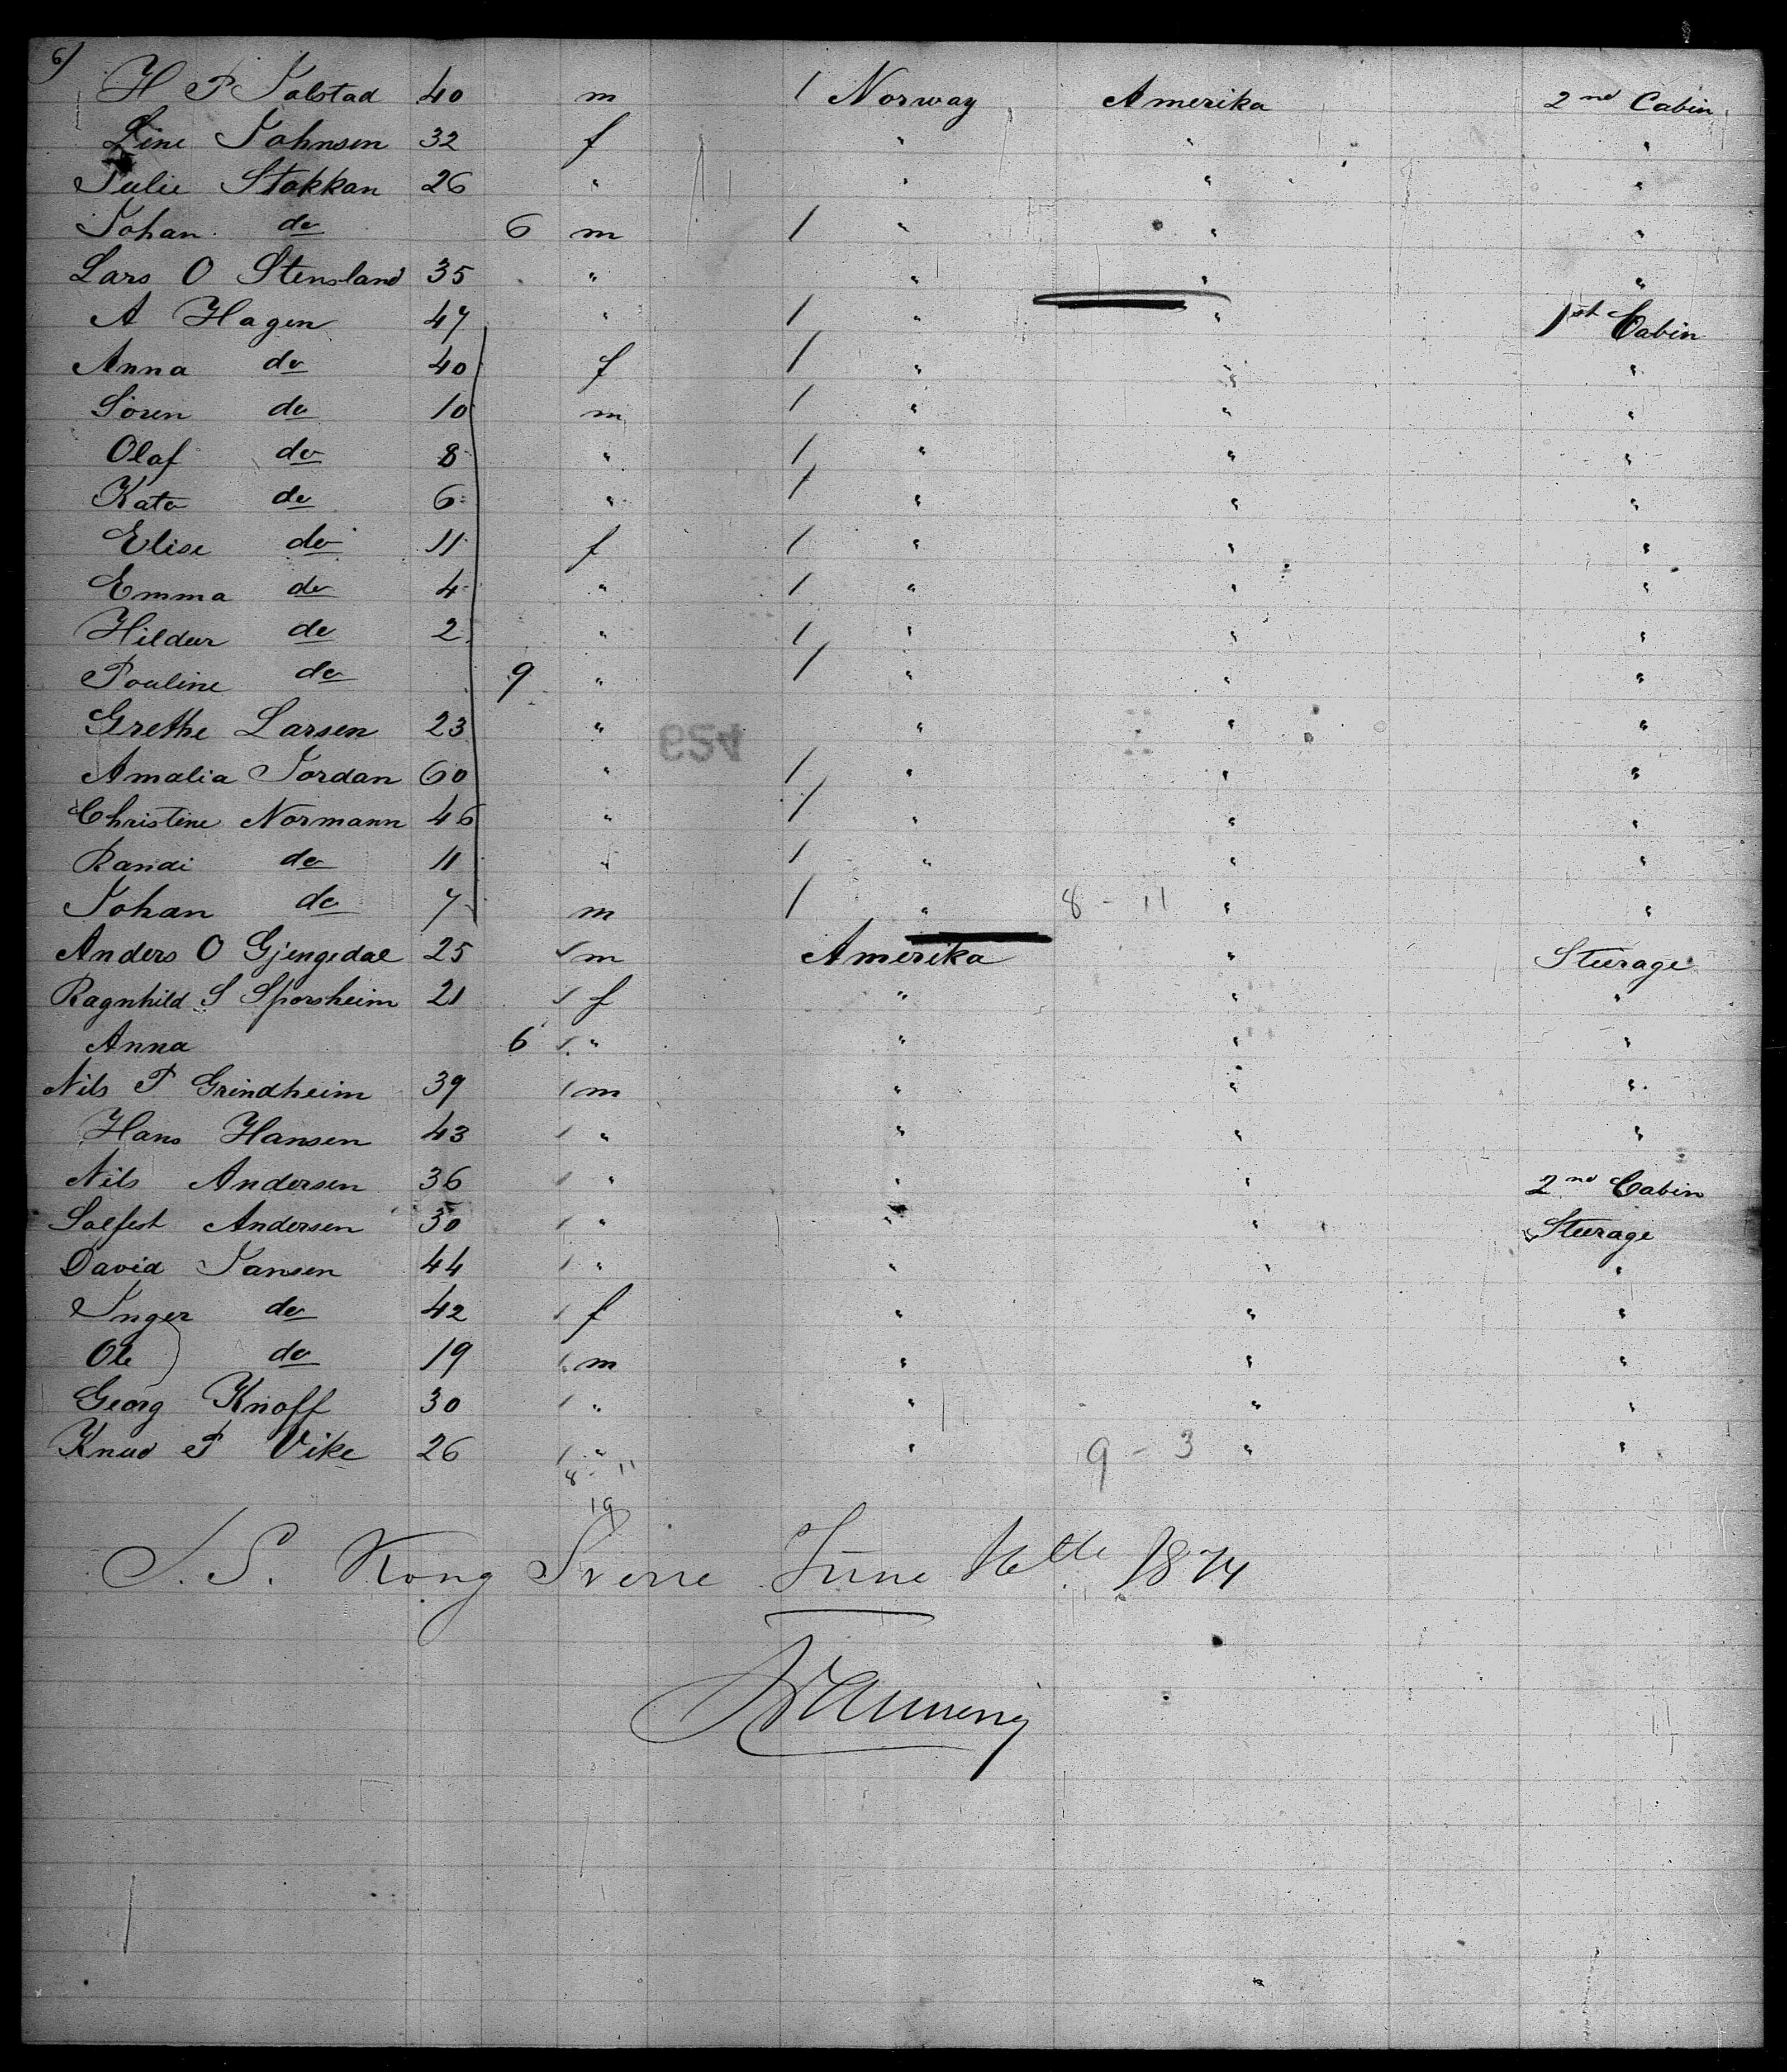 6)
H P Jalstad 40 m / Norway Amerika 2nd Cabin
Line Johnsen 32 f " " "
Julie Stokkan 26 " " " "
Johan do 6 m / " " "
Lars O Stensland 35 " " " "
A Hagen 47 " / " " 1st Cabin
Anna do 40 f / " " "
Sören do 10 m / " " "
Olaf do 8 " / " " "
Kato do 6 " / " " "
Elise do 11 f / " " "
Emma do 4 " / " " "
Hildur do 2 " / " " "
Pouline do 9 " / " " "
Grethe Larsen 23 " " " "
654
Amalia Jordan 60 " / " " "
Christine Normann 46 " / " " "
Randi do 11 " / " " "
Johan do 7 m / " 8 - 11 " "
Anders O Gjengedal 25 / m Amerika " Steerage
Ragnhild S Sporsheim 21 / f " " "
Anna 6 / " " " "
Nils P Grindheim 39 / m " " "
Hans Hansen 43 / " " " "
Nils Andersen 36 / " " " 2nd Cabin
Salfest Andersen 30 / " " " Steerage
David Jansen 44 / " " " "
Inger do 42 / f " " "
Ole do 19 / m " " "
Georg Knoff 30 / " " " "
Knud P Vike 26 / " " 9 - 3 " "
8 - 11
19
S.S. Kong Sverre June 16th 1874